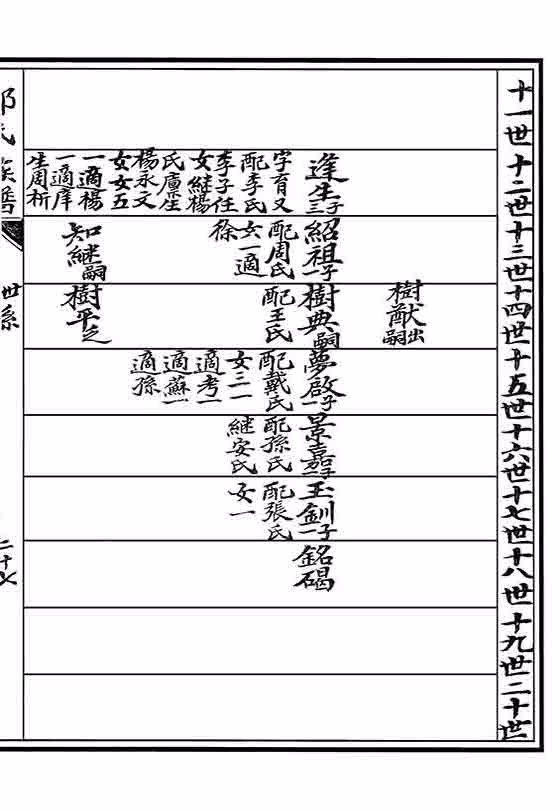 十一世
十二世
十三世
十四世
十五世
十六世
十七世
十八世
十九世
二十世
逢生三子
字育又
配李氏
李子任
女継楊
氏廪生
楊永文
女女五
一適楊
一適庠
生周析
紹祖一子
配周氏
女一適
徐
知継嗣
樹猷出嗣
樹典嗣
配王氏
樹平乏
夢啟一子
配戴氏
女三一
適考一
適蘇一
適孫
景嘉一子
配孫氏
継安氏
玉釧一子
配張氏
女一
銘碣
氏族譜
世系
二十七